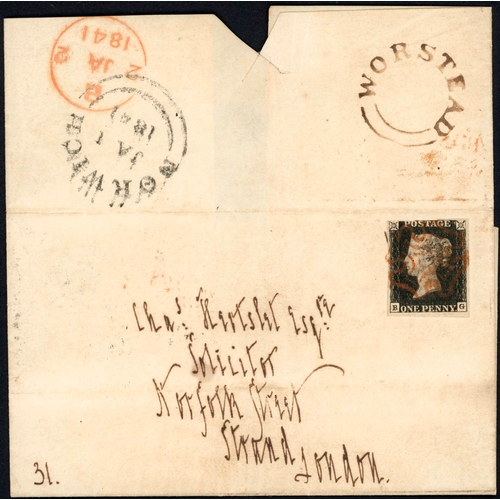 2
JA 2
1841
B
NORWICH
JA 1
1841
WORSTEAD
POSTAGE
B ONE PENNY G
Chas. Hertslet Esqre
Solicitor
Norfolk Street
Strand
London.
31.